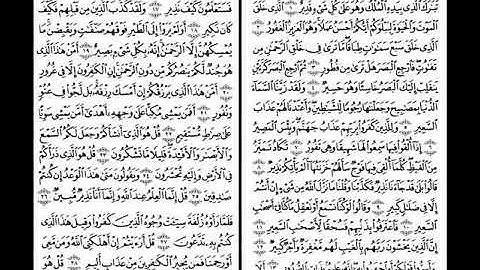 تَبَٰرَكَ ٱلَّذِى بِيَدِهِ ٱلْمُلْكُ وَهُوَ عَلَىٰ كُلِّ شَىْءٍ قَدِيرٌ ١ ٱلَّذِى خَلَقَ
ٱلْمَوْتَ وَٱلْحَيَوٰةَ لِيَبْلُوَكُمْ أَيُّكُمْ أَحْسَنُ عَمَلًا وَهُوَ ٱلْعَزِيزُ ٱلْغَفُورُ ٢
ٱلَّذِى خَلَقَ سَبْعَ سَمَٰوَٰتٍ طِبَاقًا مَّا تَرَىٰ فِى خَلْقِ ٱلرَّحْمَٰنِ مِن
تَفَٰوُتٍ فَٱرْجِعِ ٱلْبَصَرَ هَلْ تَرَىٰ مِن فُطُورٍ ٣ ثُمَّ ٱرْجِعِ ٱلْبَصَرَ كَرَّتَيْنِ
يَنقَلِبْ إِلَيْكَ ٱلْبَصَرُ خَاسِئًا وَهُوَ حَسِيرٌ ٤ وَلَقَدْ زَيَّنَّا ٱلسَّمَآءَ
ٱلدُّنْيَا بِمَصَٰبِيحَ وَجَعَلْنَٰهَا رُجُومًا لِّلشَّيَٰطِينِ وَأَعْتَدْنَا لَهُمْ عَذَابَ
ٱلسَّعِيرِ ٥ وَلِلَّذِينَ كَفَرُوا۟ بِرَبِّهِمْ عَذَابُ جَهَنَّمَ وَبِئْسَ ٱلْمَصِيرُ
٦ إِذَآ أُلْقُوا۟ فِيهَا سَمِعُوا۟ لَهَا شَهِيقًا وَهِىَ تَفُورُ ٧ تَكَادُ تَمَيَّزُ
مِنَ ٱلْغَيْظِ كُلَّمَآ أُلْقِىَ فِيهَا فَوْجٌ سَأَلَهُمْ خَزَنَتُهَآ أَلَمْ يَأْتِكُمْ نَذِيرٌ ٨
قَالُوا۟ بَلَىٰ قَدْ جَآءَنَا نَذِيرٌ فَكَذَّبْنَا وَقُلْنَا مَا نَزَّلَ ٱللَّهُ مِن شَىْءٍ إِنْ أَنتُمْ
إِلَّا فِى ضَلَٰلٍ كَبِيرٍ ٩ وَقَالُوا۟ لَوْ كُنَّا نَسْمَعُ أَوْ نَعْقِلُ مَا كُنَّا فِىٓ أَصْحَٰبِ
ٱلسَّعِيرِ ١٠ فَٱعْتَرَفُوا۟ بِذَنۢبِهِمْ فَسُحْقًا لِّأَصْحَٰبِ ٱلسَّعِيرِ ١١
إِنَّ ٱلَّذِينَ يَخْشَوْنَ رَبَّهُم بِٱلْغَيْبِ لَهُم مَّغْفِرَةٌ وَأَجْرٌ كَبِيرٌ ١٢
فَسَتَعْلَمُونَ كَيْفَ نَذِيرِ ١٧ وَلَقَدْ كَذَّبَ ٱلَّذِينَ مِن قَبْلِهِمْ فَكَيْفَ
كَانَ نَكِيرِ ١٨ أَوَلَمْ يَرَوْا۟ إِلَى ٱلطَّيْرِ فَوْقَهُمْ صَٰٓفَّٰتٍ وَيَقْبِضْنَ مَا
يُمْسِكُهُنَّ إِلَّا ٱلرَّحْمَٰنُ إِنَّهُۥ بِكُلِّ شَىْءٍۭ بَصِيرٌ ١٩ أَمَّنْ هَٰذَا ٱلَّذِى
هُوَ جُندٌ لَّكُمْ يَنصُرُكُم مِّن دُونِ ٱلرَّحْمَٰنِ إِنِ ٱلْكَٰفِرُونَ إِلَّا فِى غُرُورٍ
٢٠ أَمَّنْ هَٰذَا ٱلَّذِى يَرْزُقُكُمْ إِنْ أَمْسَكَ رِزْقَهُۥ بَل لَّجُّوا۟ فِى عُتُوٍّ
وَنُفُورٍ ٢١ أَفَمَن يَمْشِى مُكِبًّا عَلَىٰ وَجْهِهِۦٓ أَهْدَىٰٓ أَمَّن يَمْشِى سَوِيًّا
عَلَىٰ صِرَٰطٍ مُّسْتَقِيمٍ ٢٢ قُلْ هُوَ ٱلَّذِىٓ أَنشَأَكُمْ وَجَعَلَ لَكُمُ ٱلسَّمْعَ
وَٱلْأَبْصَٰرَ وَٱلْأَفْـِٔدَةَ قَلِيلًا مَّا تَشْكُرُونَ ٢٣ قُلْ هُوَ ٱلَّذِى ذَرَأَكُمْ
فِى ٱلْأَرْضِ وَإِلَيْهِ تُحْشَرُونَ ٢٤ وَيَقُولُونَ مَتَىٰ هَٰذَا ٱلْوَعْدُ إِن كُنتُمْ
صَٰدِقِينَ ٢٥ قُلْ إِنَّمَا ٱلْعِلْمُ عِندَ ٱللَّهِ وَإِنَّمَآ أَنَا۠ نَذِيرٌ مُّبِينٌ ٢٦
فَلَمَّا رَأَوْهُ زُلْفَةً سِيٓـَٔتْ وُجُوهُ ٱلَّذِينَ كَفَرُوا۟ وَقِيلَ هَٰذَا ٱلَّذِى
كُنتُم بِهِۦ تَدَّعُونَ ٢٧ قُلْ أَرَءَيْتُمْ إِنْ أَهْلَكَنِىَ ٱللَّهُ وَمَن مَّعِىَ
أَوْ رَحِمَنَا فَمَن يُجِيرُ ٱلْكَٰفِرِينَ مِنْ عَذَابٍ أَلِيمٍ ٢٨ قُلْ هُوَ